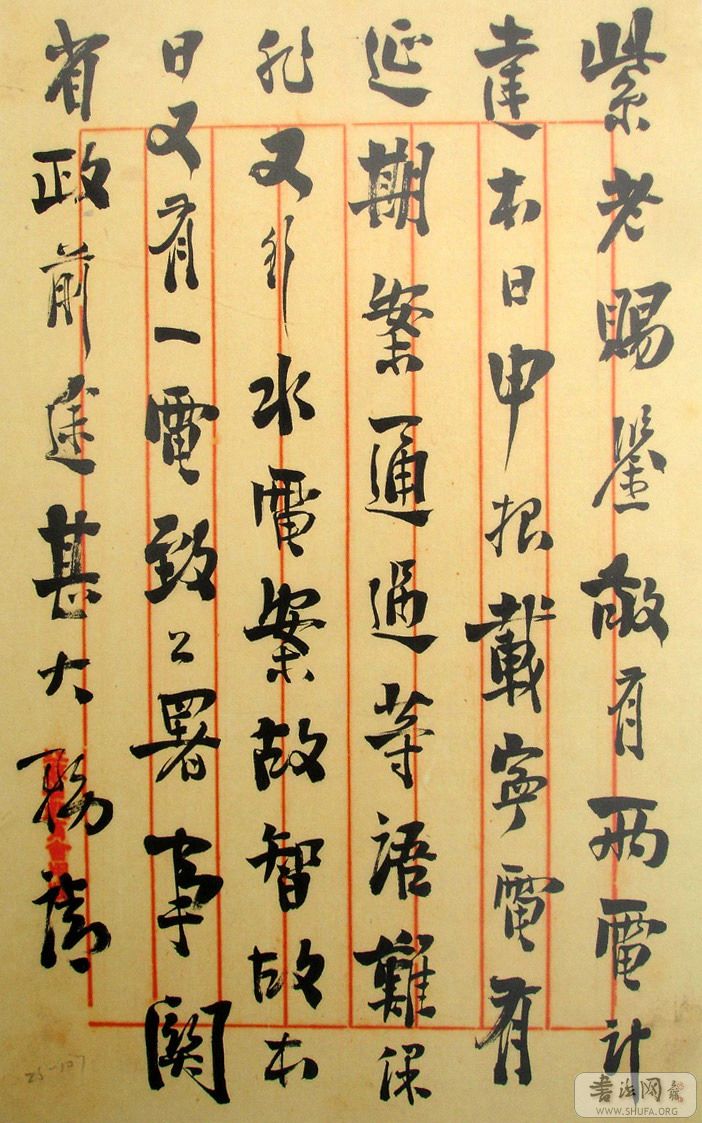 紫老賜鑒敬有兩電計
達本日申報載寧電有
延期案通過等語難保
非又引水電案故智故本
日又有一電致公署事關
省政前途甚大務請
25-107
書法网
WWW.SHUFA.ORG